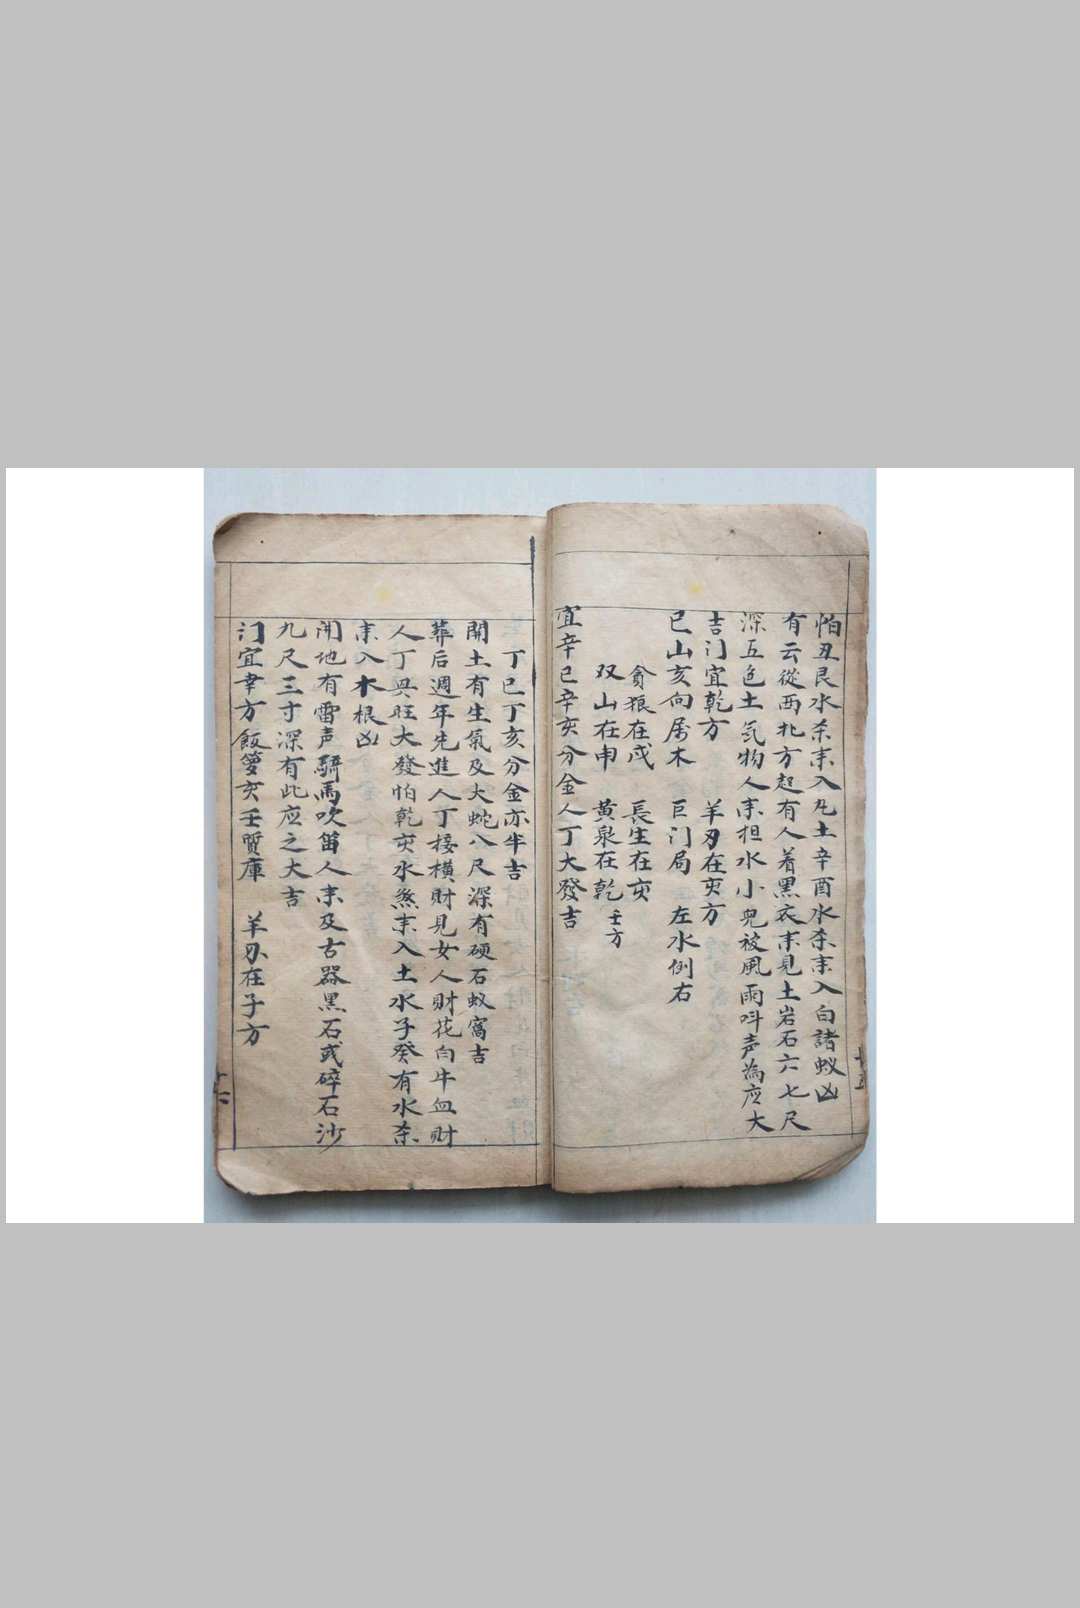 怕丑艮水杀来入凡土辛酉水杀来入白諸蚁凶
有云從西北方起有人着黑衣来見土岩石六七尺
深五色土気物人来担水小兜被風雨呌声為应大
吉门宜乾方 羊刃在亥方
巳山亥向属木 巨门局 左水倒右
貪狼在戌 長生在亥
双山在申 黄泉在乾壬方
宜辛巳辛亥分金人丁大發吉
丁巳丁亥分金亦半吉
開土有生氣及大蛇八尺深有硬石蚁窩吉
葬后週年先進人丁接横財見女人財花白牛血財
人丁兴旺大發怕乾亥水煞来入土水子癸有水杀
来入木根凶
開地有雷声騎馬吹笛人来及古器黑石或碎石沙
九尺三寸深有此应之大吉
门宜辛方飯箩亥壬質庫 羊刃在子方
十六